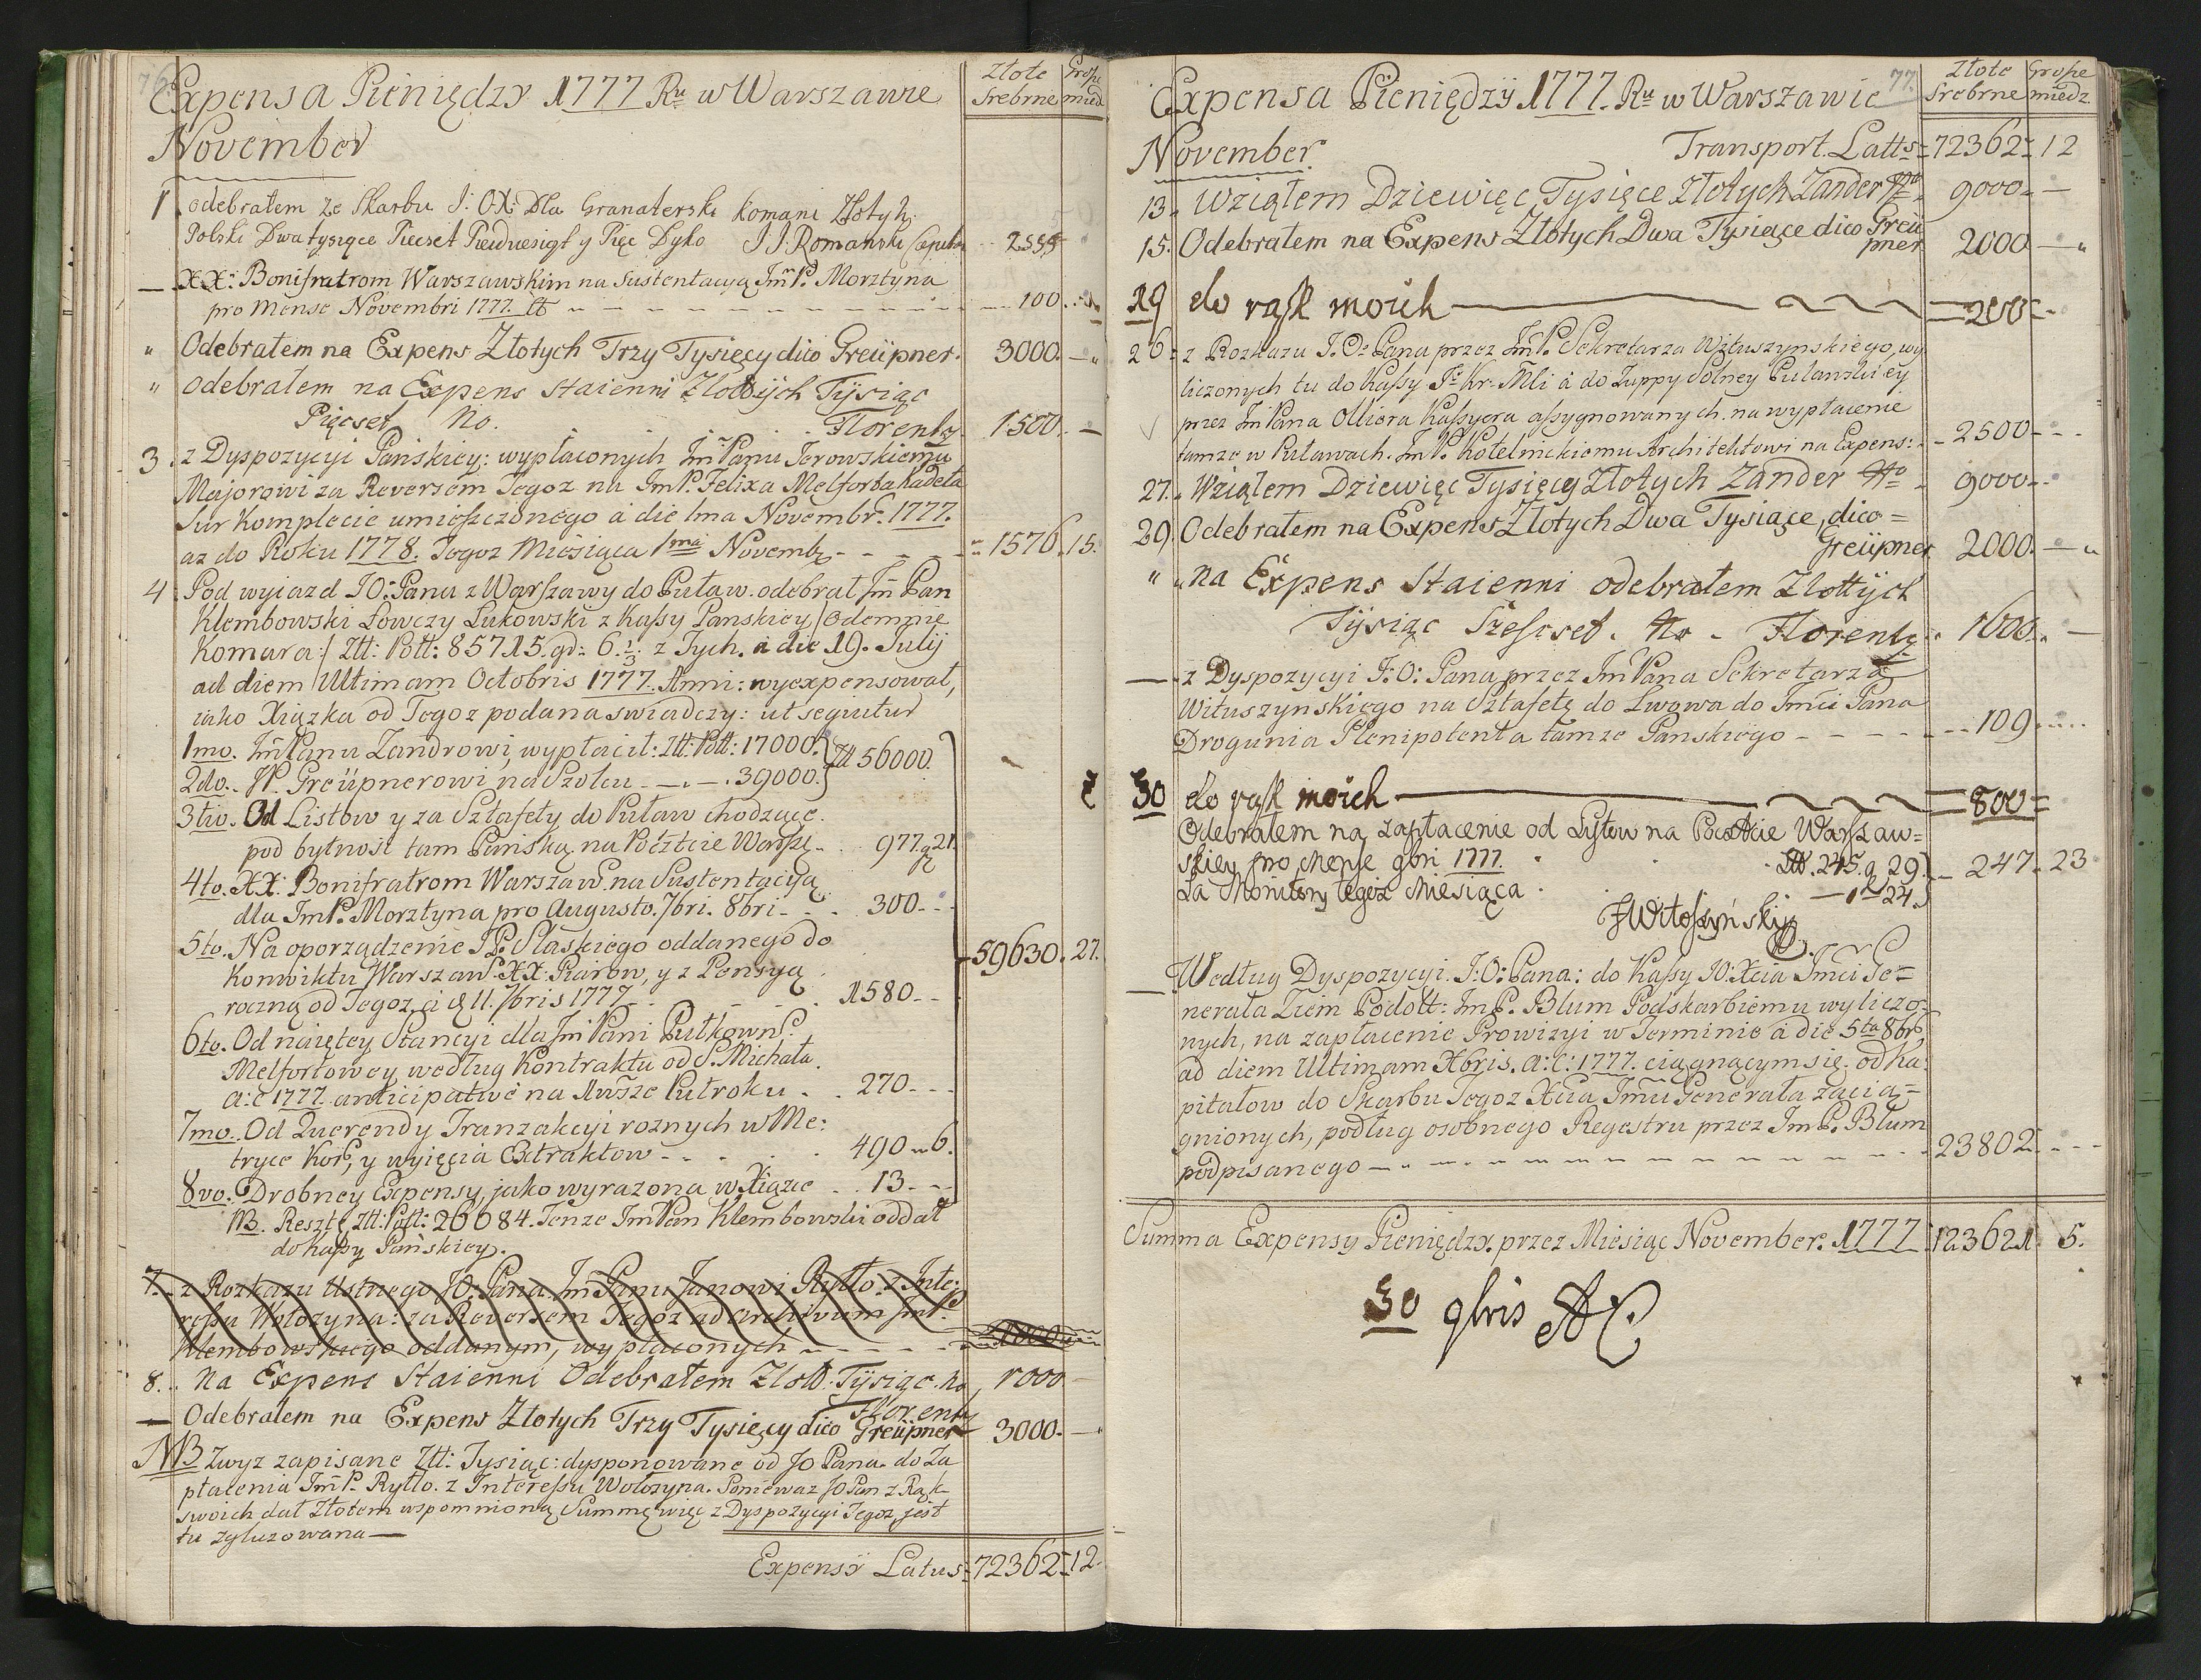 76.
Expensa Pieniędzy 1777 Ru w Warszawie
Złote Srebrne
Grosze miedz
November
1. odebrałem ze Skarbu J: OX: Dla Granaterski komani Złotyh:
Polski Dwa tysiące Piecset Piendziesigt y Pięc Dyko J J: Romanski 2555
— XX: Bonifratrom Warszawskim na Sustentacyą Jm̃P. Morztyna
pro Mense Novembri 1777. zł - - - 100. - -
" Odebrałem na Expens Złotych Trzy Tysięcy dico Greüpner. 3000. — "
" odebrałem na Expens Staienni Zlottijch Tÿsiąc
Pięcset No. . . . . Florenty. 1500. —
3. z Dyspozycyi Pańskiey: wypłaconych Jm̃Panu Jerowskiemu
Majorowi za Rewersem Tegoz na JmP. Felixa Melforta Kadeta
Sur Komplecie umieszczonego à die 1ma Novembr. 1777.
az do Roku 1778. Tegoz Miesiąca 1ma Novembr - - - - 1576. 15.
4. Pod wyjazd JO: Pana z Warszawy do Puław. odebrał Jm̃ Pan
Klembowski Łowczy Łukowski z Kassy Panskiey /: Odemnie
Komara :/ Ztt: Poll: 85715. gr: 6.⅓. z Tych. à die 19. Julij
ad diem Ultimam Octobris 1777. Anni: wyexpensował,
iako Xiązka od Tegoz podana swiadczy: ut sequitur
1mo. Jm̃Panu Zandrowi, wypłacił: Ztt: Poll: 17000. } Ztt 56000.
2do. JP. Greüpnerowi na Szolcu - . - . 39000. }
3tio. Od Listow y za Sztafety do Puław chodzące.
pod bytnośc tam Pańską na Poczcie Warsz. . . 977. g 21.
4to. XX: Bonifratrom Warszaw. na Sustentacyą
dla JmP. Morztyna pro Augusto. 7bri. 8bri - . . 300 - -
5to. Na oporządzenie JP. Slaskiego oddanego do 59630. 27.
Konwiktu Warszaw. XX: Piarow, y z Pensyą
roczną od Tegoz, à d 11. 7bris 1777 - . - - . 1580 - -
6to. Od naiętey Stancyi dla Jm̃ Pani Pułkown.
Melfortowey według Kontraktu od S. Michała.
a: c 1777. anticipative na Awsze Pułroku . . 270 - - -
7mo. Od Querendy Tranzakcyi roznych w Me:
tryce Kor, y wyięcia Extraktow - - . . . 490 " 6.
8vo. Drobney Expensy, jako wyrazona w Xiązce . . 13 - - -
NB. Resztę Ztt: Poll: 26084. Tenze JmPan Klembowski oddał
do Kassy Pańskiey.
7. z Rozkazu Ustnego JO: Pana. Jm̃ Panu Janowi Rytto. z Inte:
ressu Wołozyna: za Rewersem Tegoz ad Archivum JmP.
Klembowskiego oddanym, wypłaconych - - - - 1000
8. Na Expens Staienni Odebrałem Zlott: Tÿsiąc. No, 1000 -
Florenty
— Odebrałem na Expens Złotych Trzy Tysięcy dico Greüpner 3000. — "
NB Zwyz zapisane Ztt: Tysiąc: dysponowane od JO Pana. do Za
płacenia Jm̃P. Rytło. z Interessu Wołozyna. Poniewaz JO Pan z Rąk
swoich dał Złotem wspomnioną Summę, więc z Dyspozycyi Tegoz, jest
tu Zgluzowana —
Expensÿ Latus: 72362 = 12.
77.
Expensa Pieniędzÿ 1777. Ru w Warszawie
Złote Srebrne
Grosze miedz.
November. Transport. Latts: 72362: 12
13. Wziąłem Dziewięc Tysięce Złotych Zander 9000. —
15. Odebrałem na Expens Złotych Dwa Tysiące dico Greü
pner. 2000 — "
19 do rąk moich — 200 =
26. z Rozkazu J. O: Pana przez Jm̃P. Sekretarza Wituszynskiego, wy
liczonych tu do Kassy J: Kr: Mci à do Zuppy Solney Puławskiey
przez Jm̃ Pana Olliera Kassyera assygnowanych. na wypłacenie
tamze w Puławach. Jm̃P. Kotelnickiemu Architektowi na Expens: - 2500 - - -
27. Wziąłem Dziewięc Tysięcy Złotych Zander 9000 - -
29. Odebrałem na Expens Złotych Dwa Tysiące, dico =
Greüpner 2000. — "
" na Expens Staienni odebrałem Zlottÿch
Tÿsiąc Szescset. No - Florenty. 1600. —
— z Dyspozycyi J: O: Pana przez Jm̃ Pana Sekretarza
Wituszynskiego na Sztafetę do Lwowa do Jmci Pana
Drogunia Plenipotenta tamze Panskiego - - - - - 109. - - -
30 do rąk moich — 800 =
Odebrałem na zapłacenie od Lystow na Poczcie Warszaw=
skiey pro Mense 9bri 1777. . . Ztt. 245. g 29. } 247. 23
Za Monitory tegoz Miesiąca . — 1 " 24. }
JWitoszyński
— Według Dyspozycyi. J: O: Pana: do Kassy JO: Xcia Jmci Je=
nerała Ziem Podoll: Jm̃P. Blum Podskarbiemu wyliczo=
nych, na zapłacenie Prowizyi w Terminie à die 5ta 8br,
ad diem Ultimam Xbris. a: c: 1777. ciągnącym się. od Ka:
pitałow do Skarbu Tegoz Xcia Jmci Generała zacią=
gnionych, podług osobnego Regestru przez Jm̃P. Blum
podpisanego - - - - - 23802. - - -
Summa Expensy Pieniędzy. przez Miesiąc November. 1777 123621. 5.
30 9bris AC